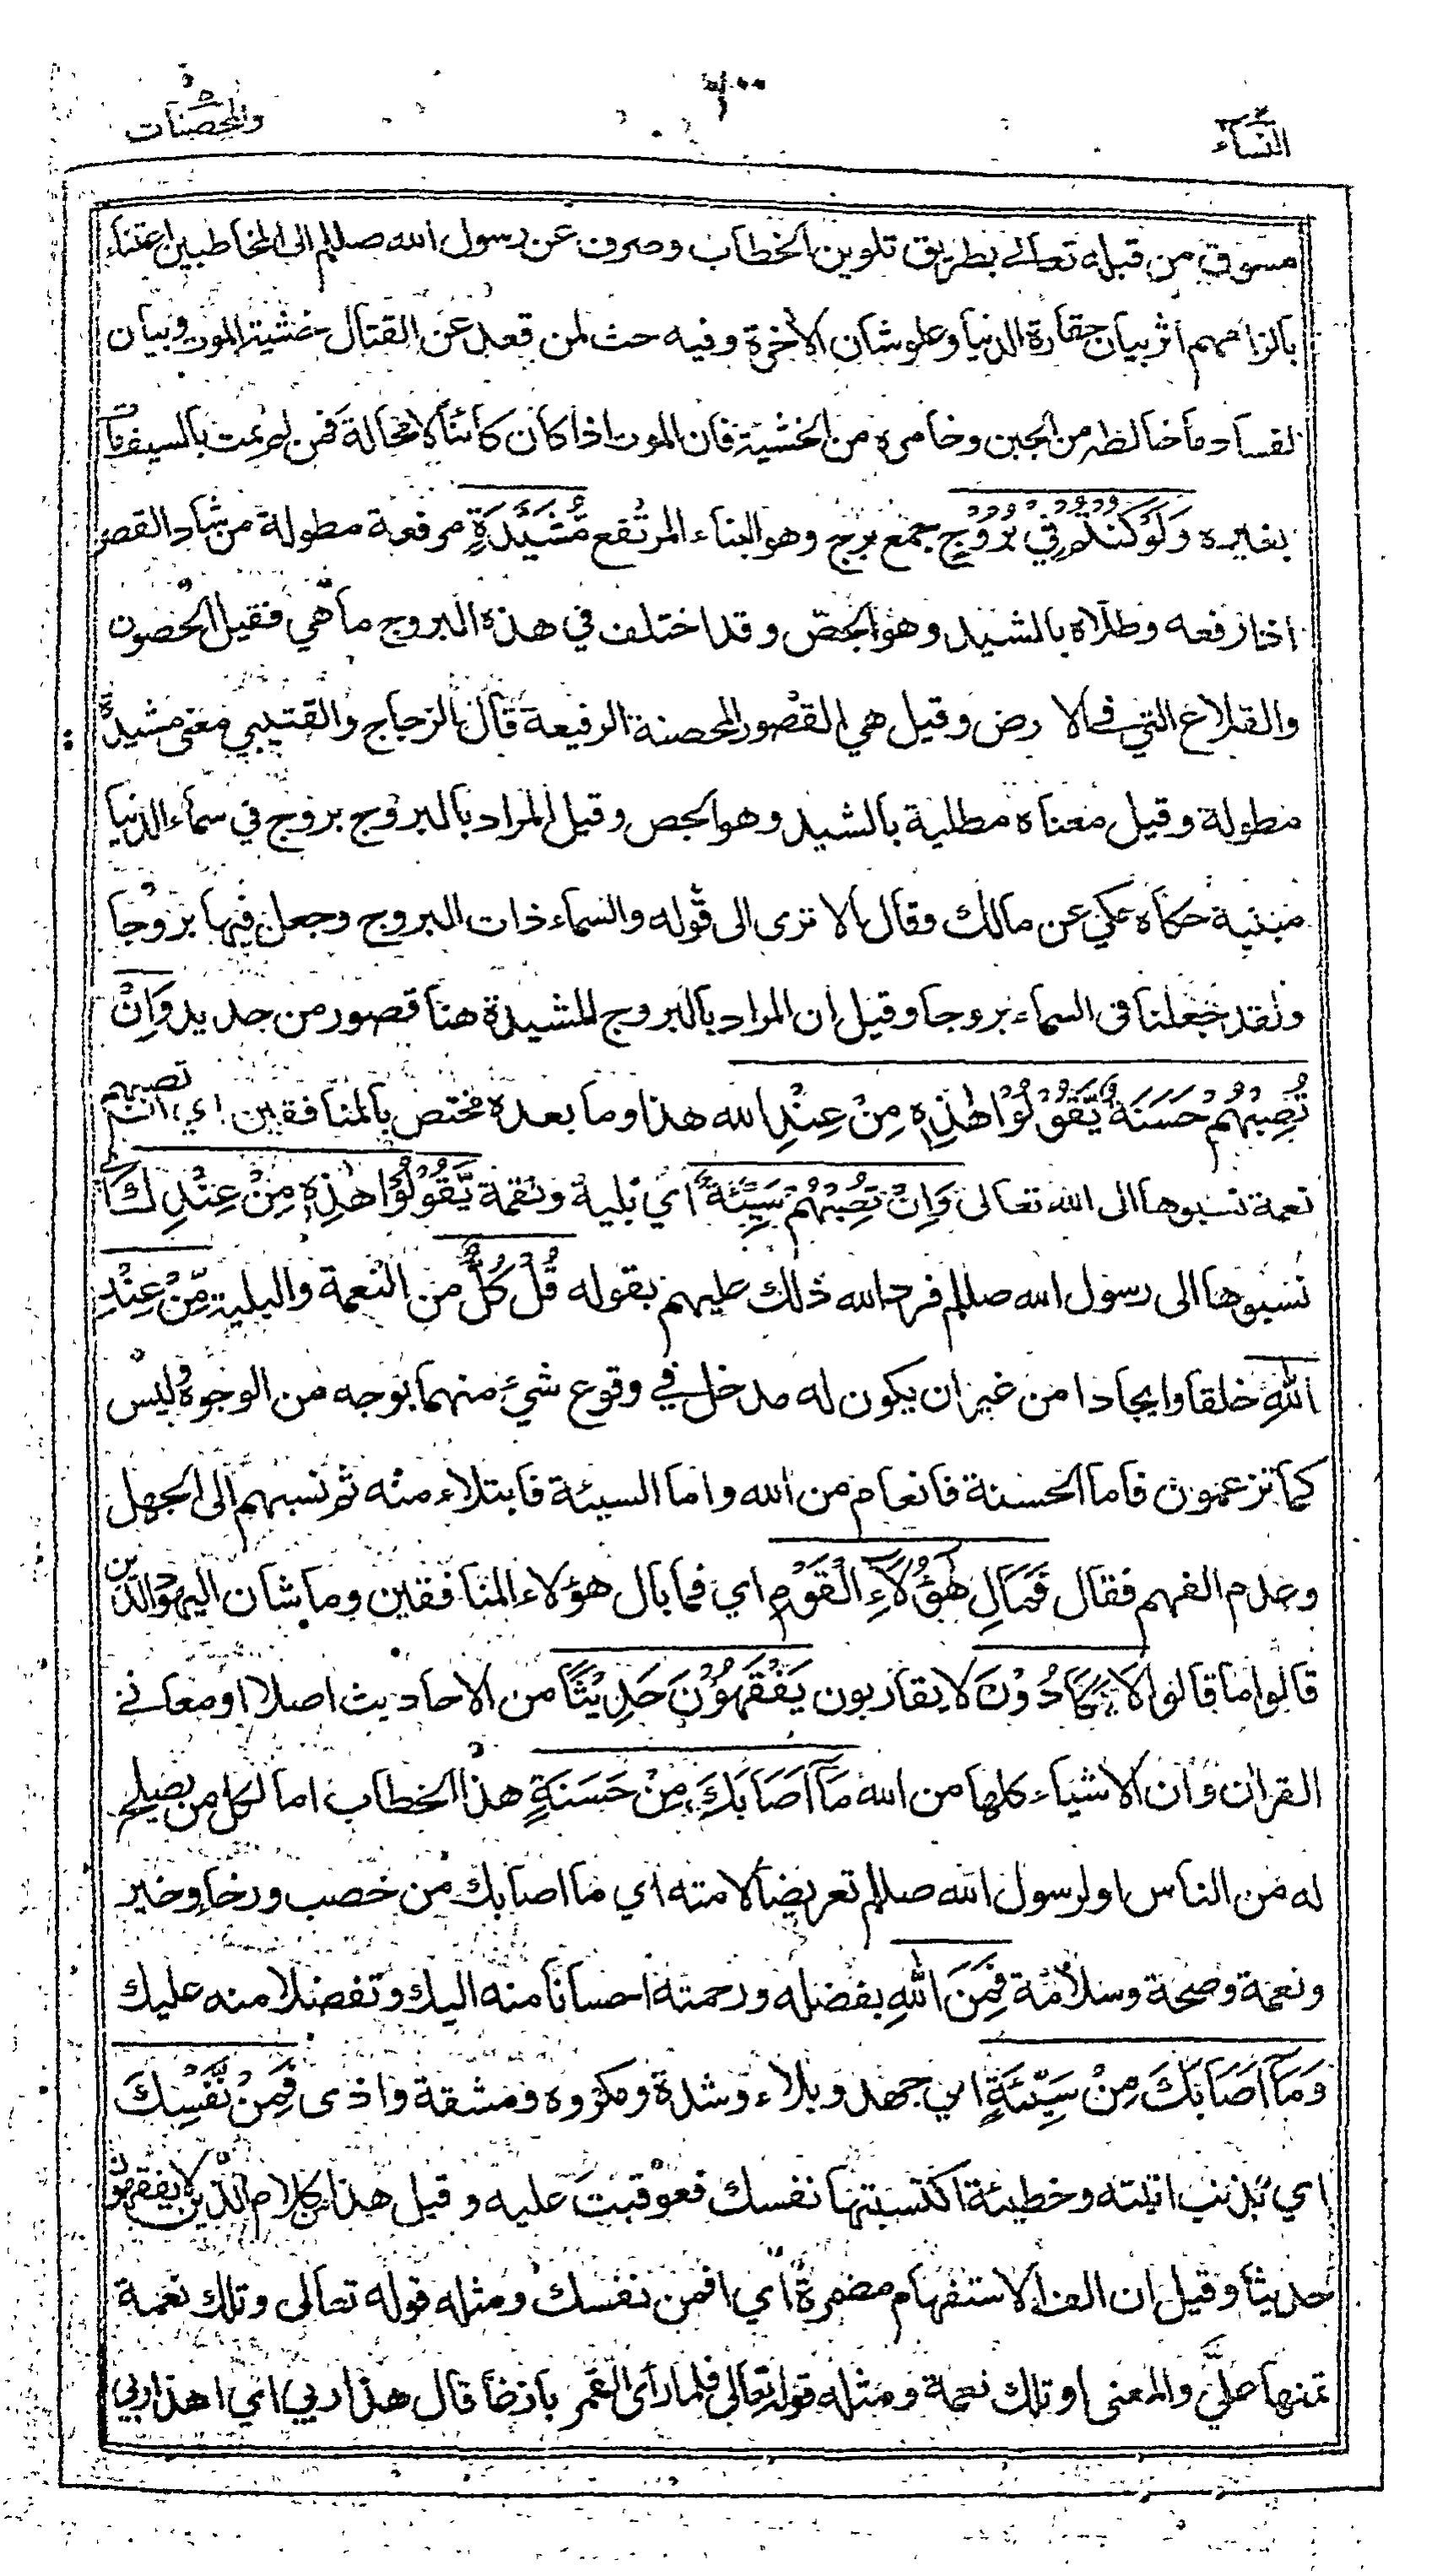 النسآء
والمحصنات
مسوق من قبله تعالى بطريق تلوين الخطاب وصرفه عن رسول الله صللم الى المخاطبين اعتناء
بالزامهم اثر بيان حقارة الدنيا وعلو شان الاخرة وفيه حث لمن قعد عن القتال خشية الموت وبيان
لفساد ما خالطه من الجبن وخامره من الخشية فان الموت اذا كان كائنا لا محالة فمن لم يمت بالسيف مات
بغيره وَلَوْ كُنْتُمْ فِيْ بُرُوْجٍ جمع برج وهو البناء المرتفع مُّشَيَّدَةٍ مرفعة مطولة من شاد القصر
اذا رفعه وطلاه بالشيد وهو الجصّ وقد اختلف في هذه البروج ما هي فقيل الحصون
والقلاع التي في الارض وقيل هي القصور المحصنة الرفيعة قال الزجاج والقتيبي معنى مشيدة
مطولة وقيل معناه مطلية بالشيد وهو الجص وقيل المراد بالبروج بروج في سماء الدنيا
مبنية حكاه مكي عن مالك وقال الا ترى الى قوله والسماء ذات البروج وجعل فيها بروجا
ولقد جعلنا فى السماء بروجا وقيل ان المراد بالبروج المشيدة هنا قصور من حديد وَاِنْ
تُصِبْهُمْ حَسَنَةٌ يَّقُوْلُوْا هٰذِهٖ مِنْ عِنْدِ الله هذا وما بعده مختص بالمنافقين اي ان تصبهم
نعمة نسبوها الى الله تعالى وَاِنْ تُصِبْهُمْ سَيِّئَةٌ اي بلية ونقمة يَّقُوْلُوْا هٰذِهٖ مِنْ عِنْدِكَ اي
نسبوها الى رسول الله صللم فرد الله ذلك عليهم بقوله قُلْ كُلٌّ من النعمة والبلية مِّنْ عِنْدِ
اللّٰهِ خلقا وايجادا من غير ان يكون له مدخل في وقوع شيء منهما بوجه من الوجوه وليس
كما تزعمون فاما الحسنة فانعام من الله واما السيئة فابتلاء منه ثم نسبهم الى الجهل
وعدم الفهم فقال فَمَالِ هٰٓؤُلَآءِ الْقَوْمِ اي فما بال هؤلاء المنافقين وما شان اليهود الذين
قالوا ما قالوا لَا يَكَادُوْنَ لا يقاربون يَفْقَهُوْنَ حَدِيْثًا من الاحاديث اصلا او معاني
القران وان الاشياء كلها من الله مَآ اَصَابَكَ مِنْ حَسَنَةٍ هذا الخطاب اما لكل من يصلح
له من الناس او لرسول الله صللم تعريضا لامته اي ما اصابك من خصب ورخاء وخير
ونعمة وصحة وسلامة فَمِنَ اللّٰهِ بفضله ورحمته احسانا منه اليك وتفضلا منه عليك
وَمَآ اَصَابَكَ مِنْ سَيِّئَةٍ اي جهد وبلاء وشدة ومكروه ومشقة واذى فَمِنْ نَّفْسِكَ
اي بذنب اتيته وخطيئة اكتسبتها نفسك فعوقبت عليه وقيل هذا من كلام الذين لا يفقهون
حديثا وقيل ان الف الاستفهام مضمرة اي افمن نفسك ومثله قوله تعالى وتلك نعمة
تمنها عليّ والمعنى او تلك نعمة ومثله قوله تعالى فلما رأى القمر بازغا قال هذا ربي اي اهذا ربي